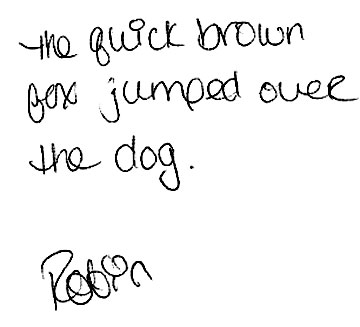 the quick brown
fox jumped over
the dog.
Robin